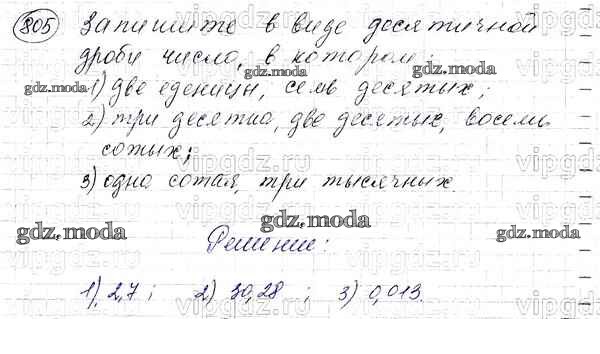 805 Запишите в виде десятичной
дроби число, в котором:
1) две еденицы, семь десятых;
2) три десятка, две десятых, восемь
сотых;
3) одна сотая, три тысячных.
Решение:
1) 2,7; 2) 30,28; 3) 0,013.
gdz.moda
gdz.moda
gdz.moda
gdz.moda
gdz.moda
gdz.moda
vipgdz.ru